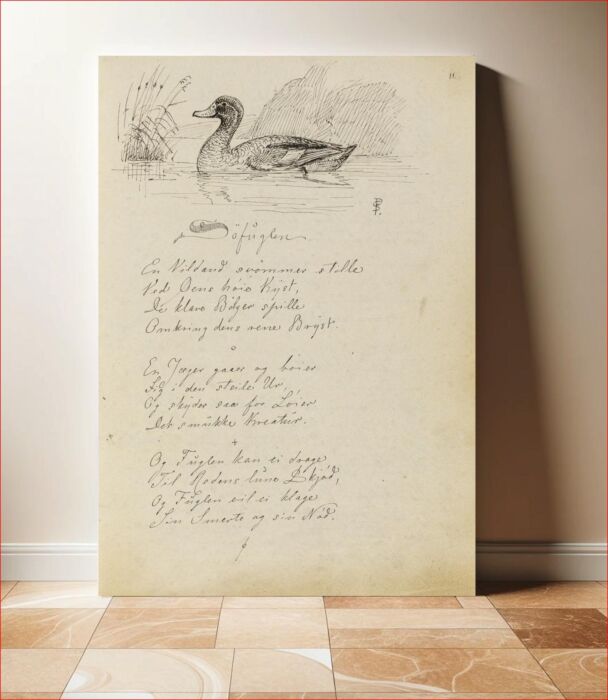 11.
Söfuglen.
En Vildand svömmer stille
Ved Öens höie Kyst,
De klare Bölger spille
Omkring dens rene Bryst.
En Jæger gaaer og böier
Sig i den steile Ur,
Og skyder saa for Löier
Det smukke Kreatur.
Og Fuglen kan ei drage
Til Redens lune Skjöd,
Og Fuglen vil ei klage
Sin Smerte og sin Nöd.